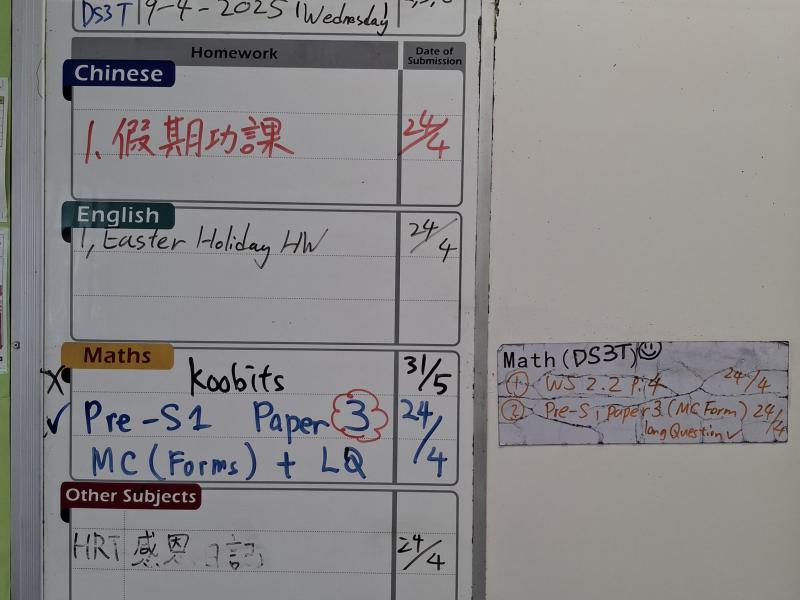 DS3T 9-4-2025 (Wednesday)
Homework Date of Submission
Chinese
1. 假期功課 24/4
English
1, Easter Holiday HW 24/4
Maths
x koobits 31/5
✓ Pre-S1 Paper 3 24/4
MC (Forms) + LQ
Other Subjects
HRT 感恩日記 24/4
Math (DS3T) ☺
① WS 2.2 P.4 24/4
② Pre-S1 paper 3 (MC Form) 24/4
long Question ✓